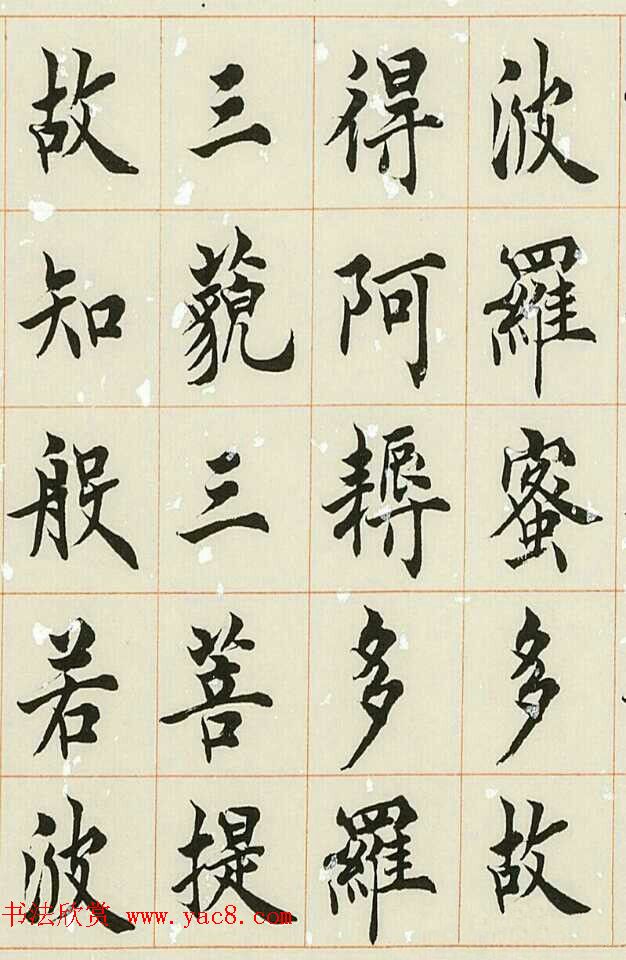 波羅蜜多故
得阿耨多羅
三藐三菩提
故知般若波
书法欣赏 www.yac8.com